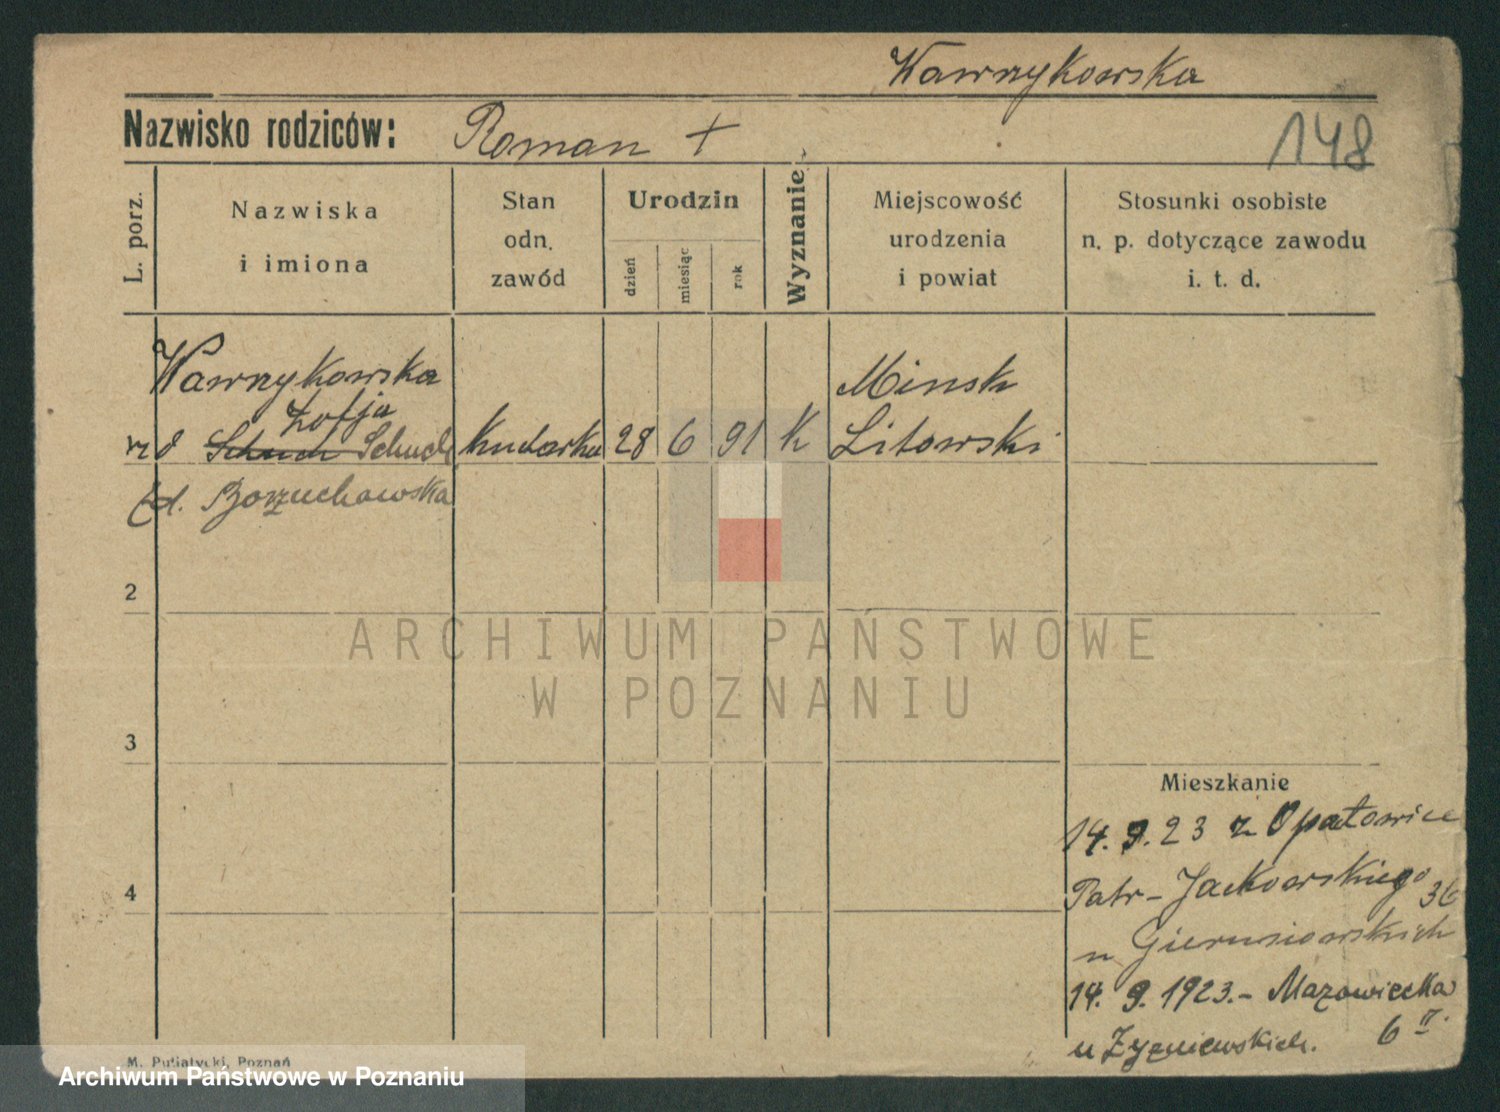 Wawrzykowska
Nazwisko rodziców: Roman + 148
L. porz.
Nazwiska
i imiona
Stan
odn.
zawód
Urodzin
dzień
miesiąc
rok
Wyznanie
Miejscowość
urodzenia
i powiat
Stosunki osobiste
n. p. dotyczące zawodu
i. t. d.
Wawrzykowska
Zofja
Schuch Schuch
kucharka 28 6 91 K
Minsk
Litowski
Borzuchowska
2
3
4
Mieszkanie
14. 9. 23 z Opatowice
Patr - Jackowskiego 36
u
14. 9. 1923. - Mazowiecka
6 II.
u Zyzniewskich.
M. Putiatycki, Poznań
ARCHIWUM PAŃSTWOWE
W POZNANIU
Archiwum Państwowe w Poznaniu